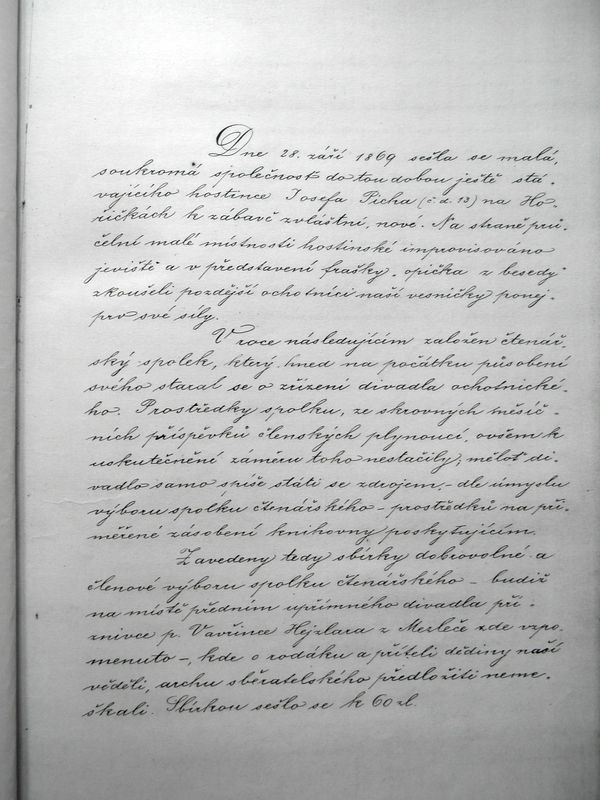 Dne 28. září 1869 sešla se malá,
soukromá společnost do tou dobou ještě stá-
vajícího hostince Josefa Pícha (č.d. 13) na Ho-
řičkách k zábavě zvláštní, nové. Na straně prů-
čelní malé místnosti hostinské improvisováno
jeviště a v představení frašky „opička z besedy"
zkoušeli pozdější ochotníci naší vesničky ponej-
prv své síly.
V roce následujícím založen čtenář-
ský spolek, který hned na počátku působení
svého staral se o zřízení divadla ochotnické-
ho. Prostředky spolku, ze skrovných měsíč-
ních příspěvků členských plynoucí, ovšem k
uskutečnění záměru toho nestačily; měloť di-
vadlo samo spíše státi se zdrojem, – dle úmyslu
výboru spolku čtenářského – prostředků na při-
měřené zásobení knihovny poskytujícím.
Zavedeny tedy sbírky dobrovolné a
členové výboru spolku čtenářského – budiž
na místě předním upřímného divadla pří-
znivce p. Vavřince Hejzlara z Mezleče zde vzpo-
menuto –, kde o rodáku a příteli dědiny naší
věděli, archu sběratelského předložiti neme-
škali. Sbírkou sešlo se k 60 zl.